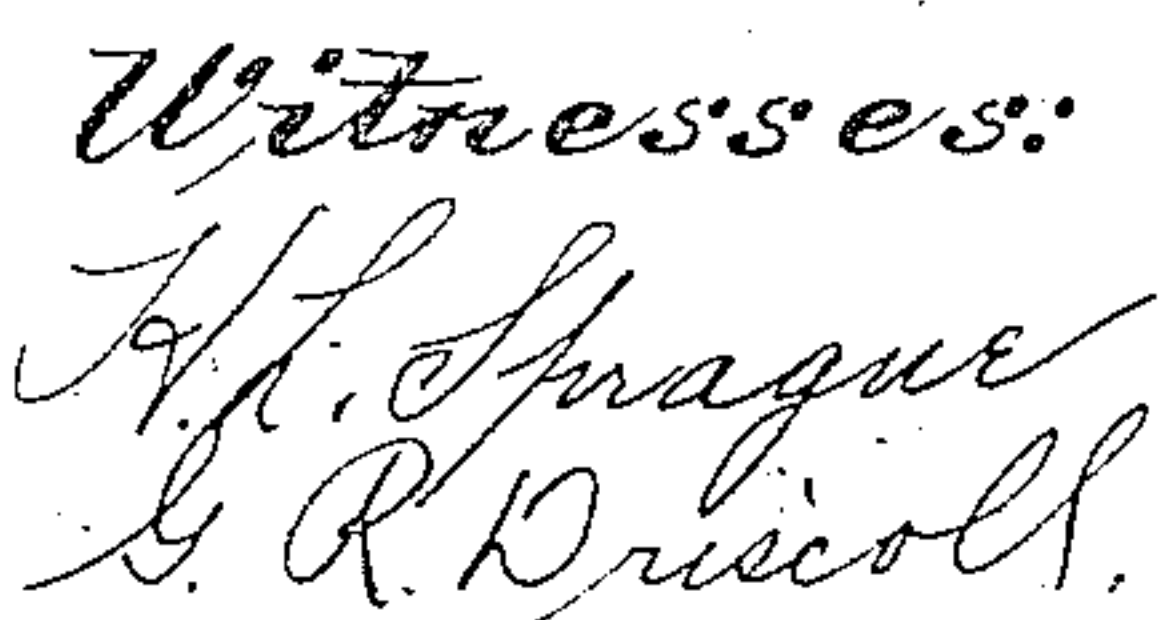 Witnesses:
H. L. Sprague
G. R. Driscoll.